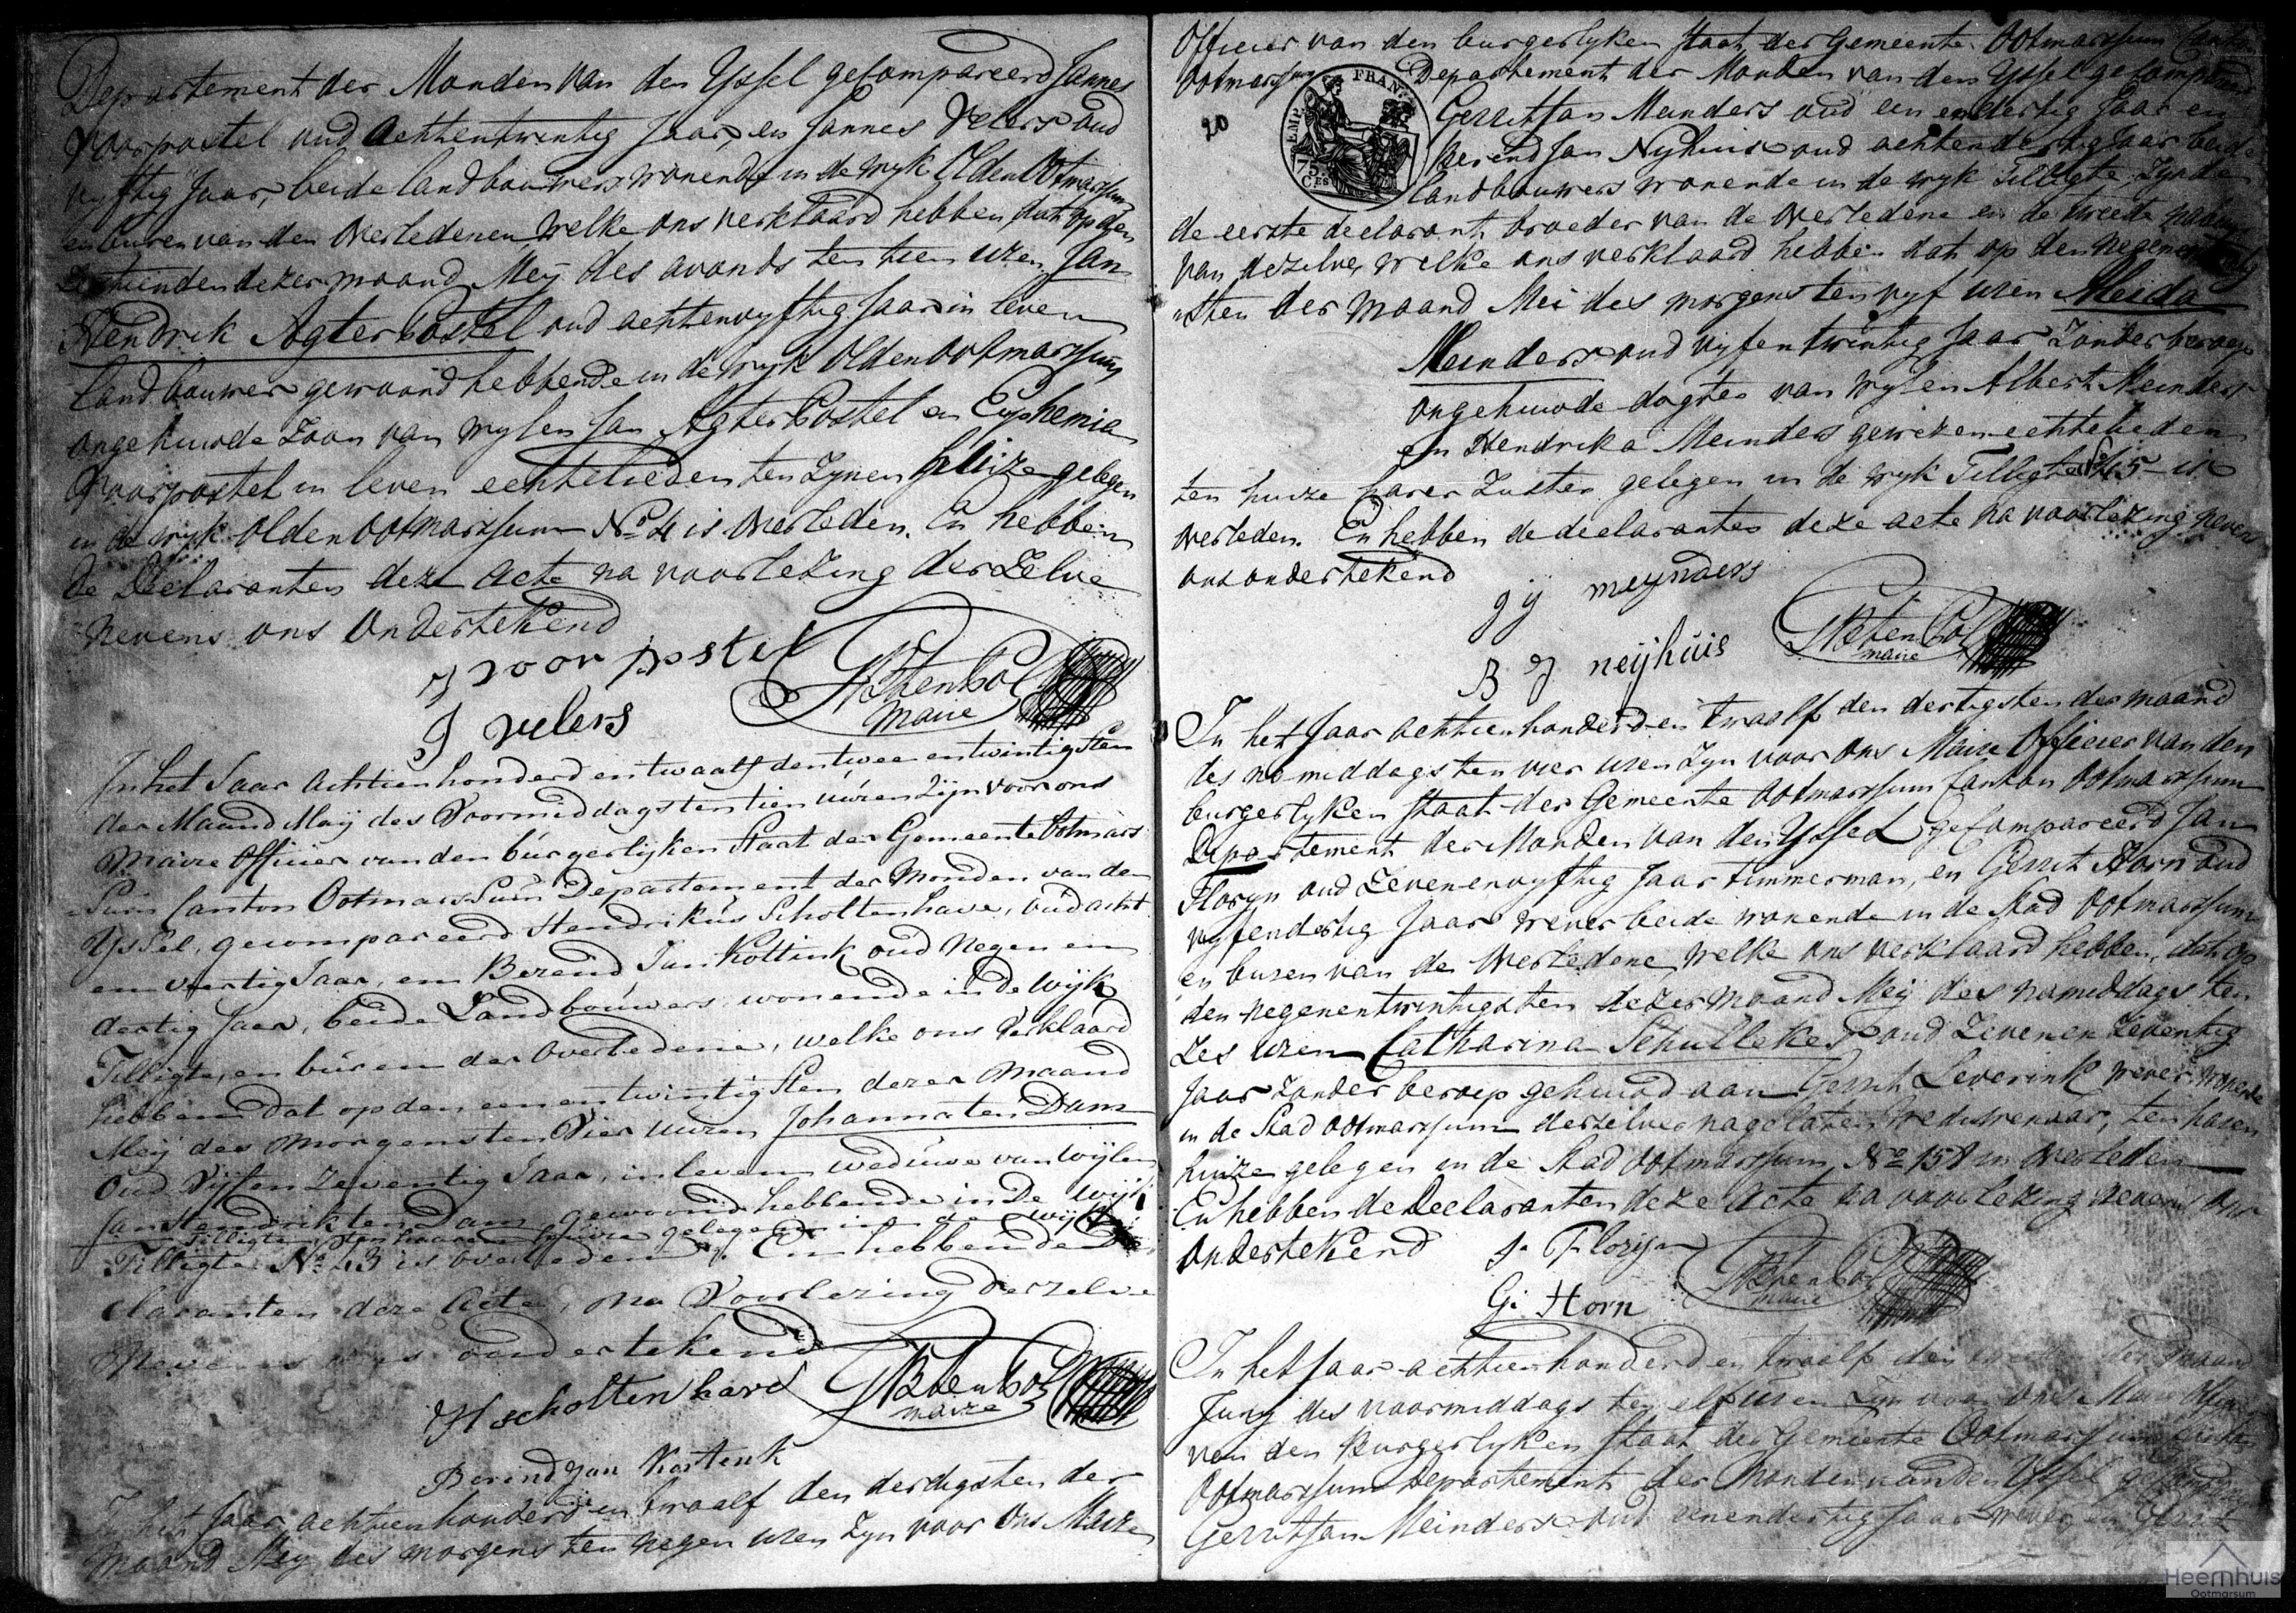 Departement der Monden van den Yssel gekompareerd Jannes
Voorpostel oud Achtentwintig Jaar, en Jannes Velers oud
vyftig Jaar, beide landbouwers wonende in de wyk Olden Ootmarssum
en buren van den Overledenen, welke ons verklaard hebben, dat op den
dezer maand Mey des avonds ten tien uren Jan
Hendrik Agterpostel oud achtenvyftig Jaar in leven
landbouwer gewoond hebbende in de wyk oldenootmarssum,
ongehuwde Zoon van wylen Jan Agterpostel en Euphemia
Voorpostel in leven echtelieden ten Zynen huize gelegen
in de wyk oldenootmarssum No 4 is Overleden. En hebben
de Declaranten deze acte na voorlezing derzelve
nevens ons Ondertekend
J voor postel
J velers
maire
In het Jaar Achttienhonderd en twaalf den twee entwintigsten
der Maand Meij des Voormiddags ten tien uúren zijn voor ons
Maire Officier van den búrgerlijken Staat der Gemeente Ootmars
Súm Canton OotmarsSúm Departement der Monden van den
YsSel, gecompareerd Hendrikús Scholtenhave, oúd acht
en veertig Jaar, en Berend Jan Kottink oud Negen en
dertig Jaar, beide Landboúwers, wonende in de Wijk
Tilligte, en búren der Overledene, welke ons Verklaard
hebben dat op den een entwintigsten dezer Maand
Meij des Morgens ten Vier uúren Johanna ten Dam
Oud Vijfen Zeventig Jaar, in leven wedúwe van Wijlen
Jan Hendrik ten Dam gewoond hebbende in De Wijk
Tilligte, ten haaren húize gelegen in de Wijk
Tilligte No 43 is overleden. En hebben de De
claranten deze Acte, na Voorlezing derzelve
Nevens ons ondertekend
H scholtenhave
maire
Berend Jan Kottenk
In het Jaar achtienhonderd en twaalf den dertigsten der
maand Mey des morgens ten negen uren Zyn voor Ons Maire
Officier van den burgerlyken Staat der Gemeente Ootmarssum Canton
Ootmarssum Departement der Monden van den Yssel gekompareerd
EMP. FRAN.
75
CES
20
Gerrit Jan Meinders oud een en dertig Jaar en
Berend Jan Nyhuis oud achtendertig Jaar beide
landbouwers wonende in de wyk Tilligte, Zynde
de eerste declarant broeder van de Overledene en de tweede
van dezelve, welke ons verklaard hebben dat op den negenentwintig
sten der maand Mei des morgens ten vyf uren Meida
Meinders oud vyfentwintig Jaar Zonder beroep
ongehuwde dogter van wylen Albert Meinders
en Hendrika Meinders gewezen echtelieden
ten huize harer Zuster gelegen in de wyk Tilligte No 45 is
Overleden. En hebben de declaranten deze acte na voorlezing nevens
ons ondertekend
g ij meynders
B J neijhúis
maire
In het Jaar achtienhonderd en twaalf den dertigsten der maand
des namiddags ten vier uren Zyn voor Ons Maire Officier van den
burgerlyken Staat der Gemeente Ootmarssum Canton Ootmarssum
Departement der Monden van den Yssel gekompareerd Jan
Floryn oud Zevenenvyftig Jaar timmerman, en Gerrit Horn oud
vyfendertig Jaar wever beide wonende in de Stad Ootmarssum
en buren van de Overledene, welke ons verklaard hebben, dat op
den negenentwintigsten dezer maand Mey des namiddags ten
Zes uren Catharina Schulleker oud Zevenen Zeventig
Jaar Zonder beroep gehuwd aan Gerrit Leverink wever, wonende
in de Stad Ootmarssum derzelver nagelaten Weduwenaar, ten haren
huize gelegen in de Stad Ootmarssum No 158 in Overleden
En hebben de Declaranten deze Acte na voorlezing nevens Ons
Ondertekend
J. Florijn
G. Horn
maire
In het Jaar achtienhonderd en twaalf den der Maand
Juny des voormiddags ten elf uren Zyn voor Ons Maire Officier
van den Burgerlyken Staat der Gemeente Ootmarssum Canton
Ootmarssum Departement der Monden van den Yssel gekompareerd
Gerrit Jan Meinders oud eenendertig Jaar wever, en Gerrit
Heemhuis
Ootmarsum